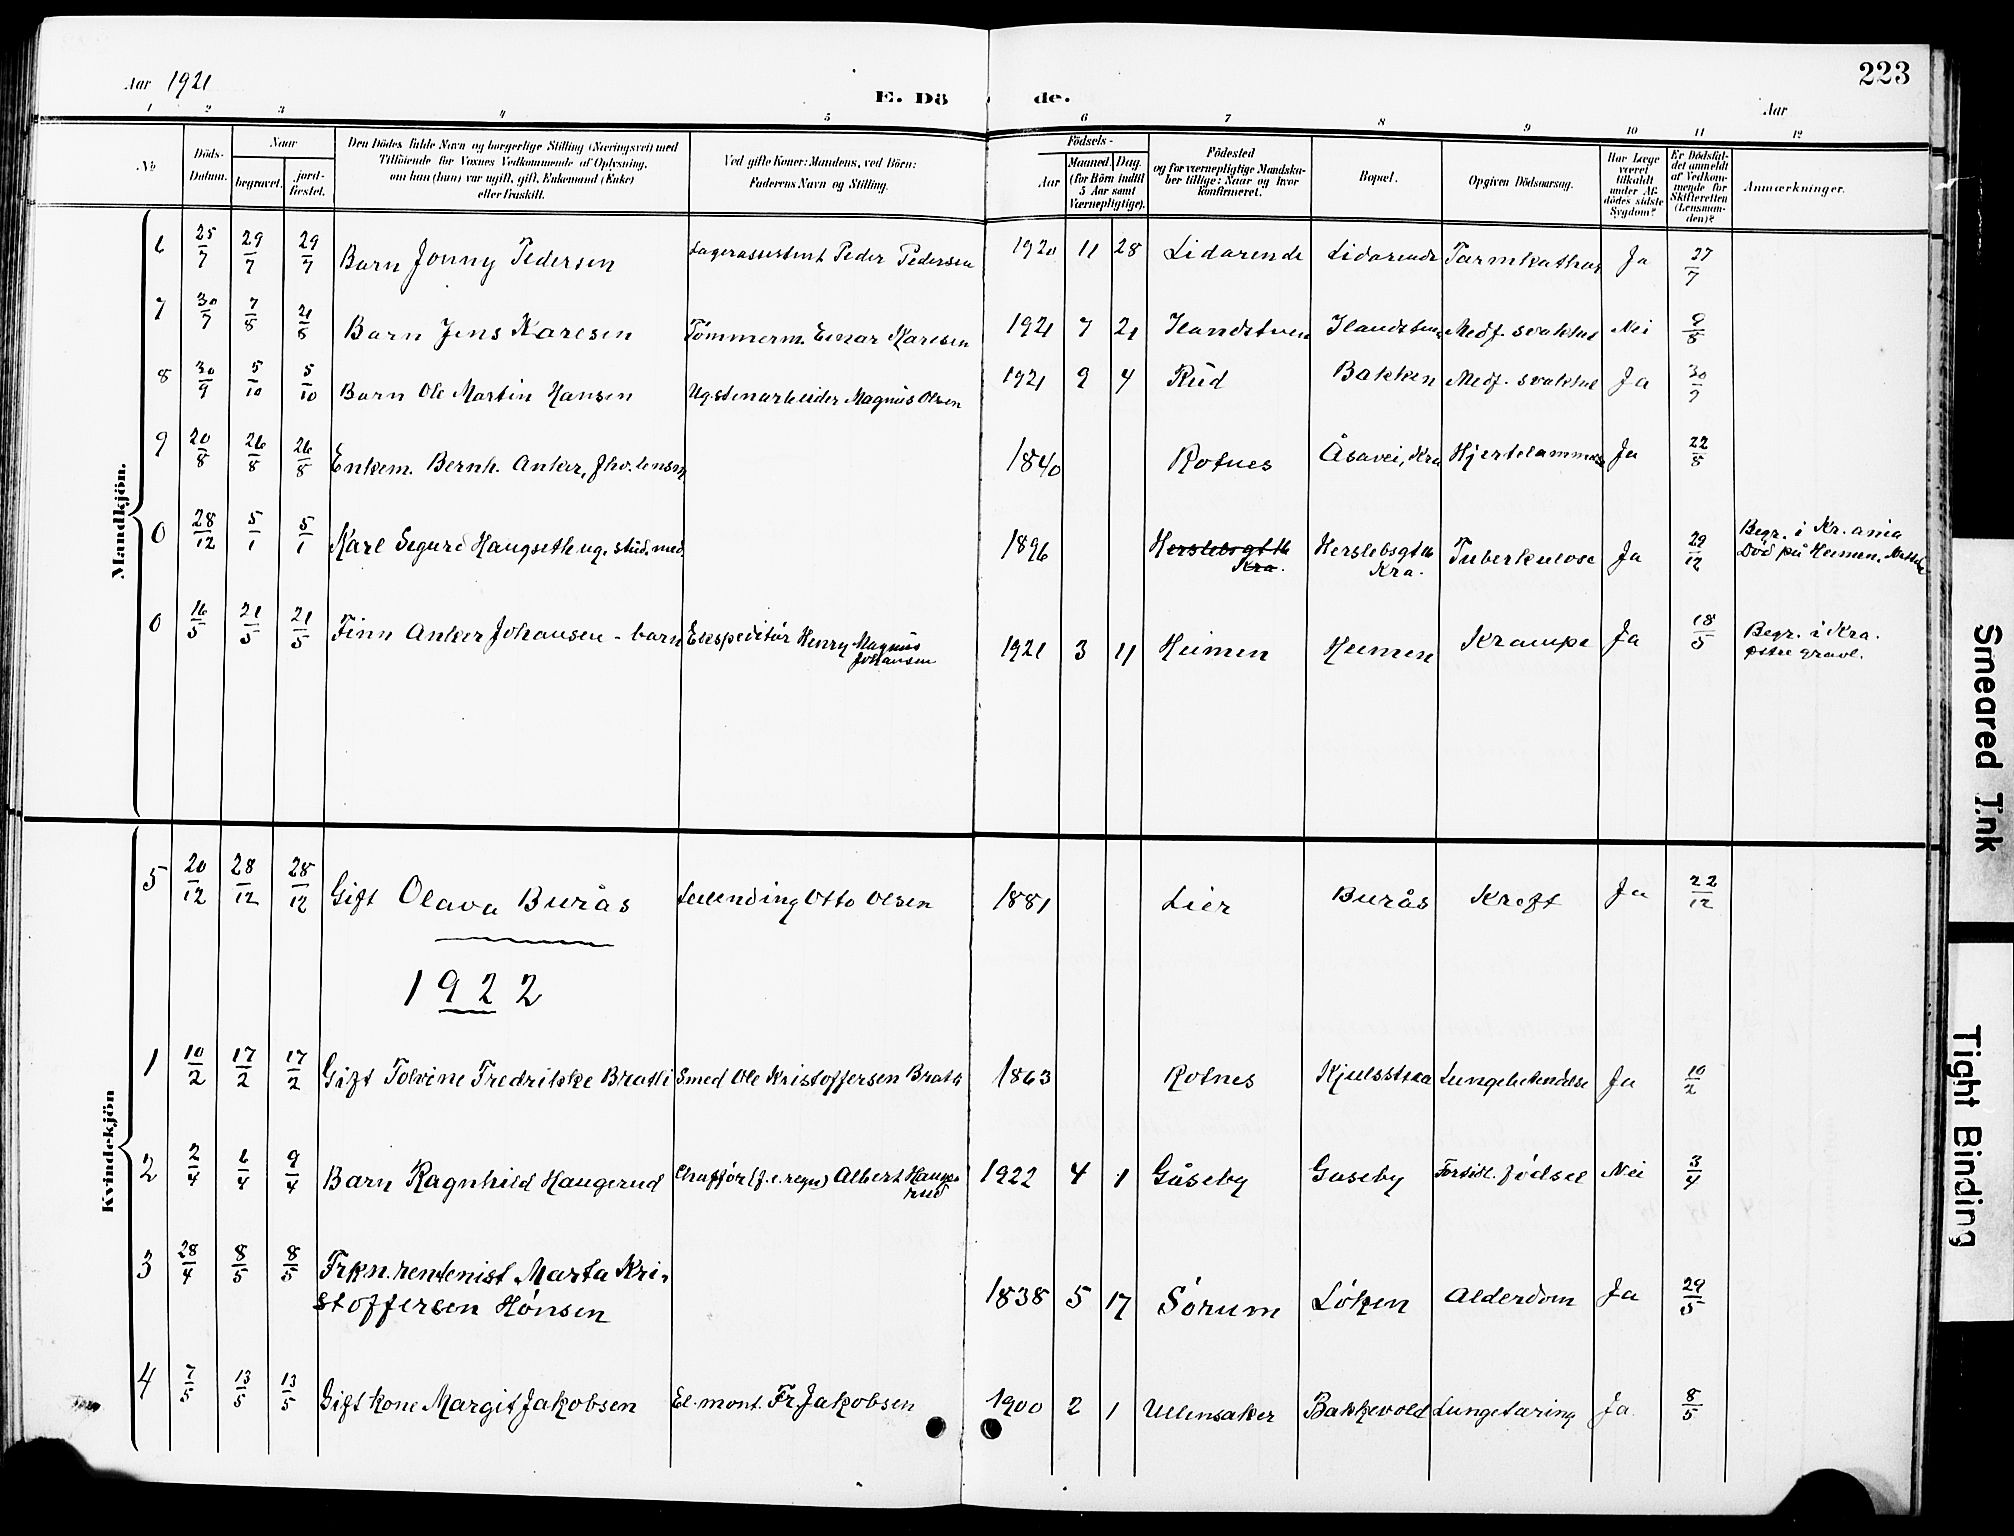 Aar 1921
E. Dö de.
Aar
223
1 2 3 4 5 6 7 8 9 10 11 12
No
Döds-Datum.
Naar
begravet.
jord-fæstet.
Den Dödes fulde Navn og borgerlige Stilling (Næringsvei) med
Tilföiende for Voxnes Vedkommende af Oplysning,
om han (hun) var ugift, gift, Enkemand (Enke)
eller fraskilt.
Ved gifte Koner: Mandens, ved Börn:
Faderens Navn og Stilling.
Födsels-
Aar
Maaned. Dag.
(for Börn indtil
5 Aar samt
Værnepligtige).
Födested
og for værnepligtige Mandska-
ber tillige: Naar og hvor
konfirmeret.
Bopæl.
Opgiven Dödsaarsag.
Har Læge
været
tilkaldt
under Af-
dödes sidste
Sygdom?
Er Dödsfal-
det anmeldt
af Vedkom-
mende for
Skifteretten
(Lensman-
den)?
Anmærkninger.
Mandkjön.
6 25/7 29/7 29/7 Barn Jonny Pedersen Lagerassistent Peder Pedersen 1920 11 28 Lidarende Lidarende Tarmkathar Ja 27/7
7 30/7 7/8 21/8 Barn Jens Karlsen Tömmerm. Einar Karlsen 1921 7 21 Medf. svakhet Nei 9/8
8 30/9 5/10 5/10 Barn Ole Martin Hansen Magnus Olsen 1921 9 4 Rud Bakken Medf. svakhet Ja 30/9
9 20/8 26/8 26/8 Enkem. Bernh. Anker, 1840 Rotnes Åsavei, Kra Hjertelammelse Ja 22/8
0 28/12 5/1 5/1 Karl Sigurd Haugseth ug. stud. med. 1896 Herslebsgt 16 Kra. Herslebsgt 16 Kra. Tuberkulose Ja 29/12 Begr. i Kr.ania
Död på Heimen,
0 16/5 21/5 21/5 Finn Anker Johansen - barn Ekspeditör Henry Magnus
Johansen 1921 3 11 Heimen Heimen Krampe Ja 18/5 Begr. i Kra.
østre gravl.
Kvindekjön
5 20/12 28/12 28/12 Gift Olava Burås Leilending Otto Olsen 1881 Lier Burås Kreft Ja 22/12
1922
1 10/2 17/2 17/2 Gift Tolvine Fredrikke Bratli Smed Ole Kristoffersen Bratli 1863 Rotnes Kjulsstraa Lungebetendelse Ja 10/2
2 2/4 6/4 9/4 Barn Ragnhild Haugerud Chafför (f.e.regn) Albert Hauge-
rud 1922 4 1 Gåseby Gaseby Forsitl. födsel Nei 3/4
3 28/4 8/5 8/5 Frkn. rentenist Marta Kri-
stoffersen Hönsen 1838 5 17 Sörum Löken Alderdom Ja 29/5
4 7/5 13/5 13/5 Gift kone Margit Jakobsen El. mont. Fr. Jakobsen 1900 2 1 Ullensaker Bakkevold Lungetæring Ja 8/5
Smeared Ink
Tight Binding